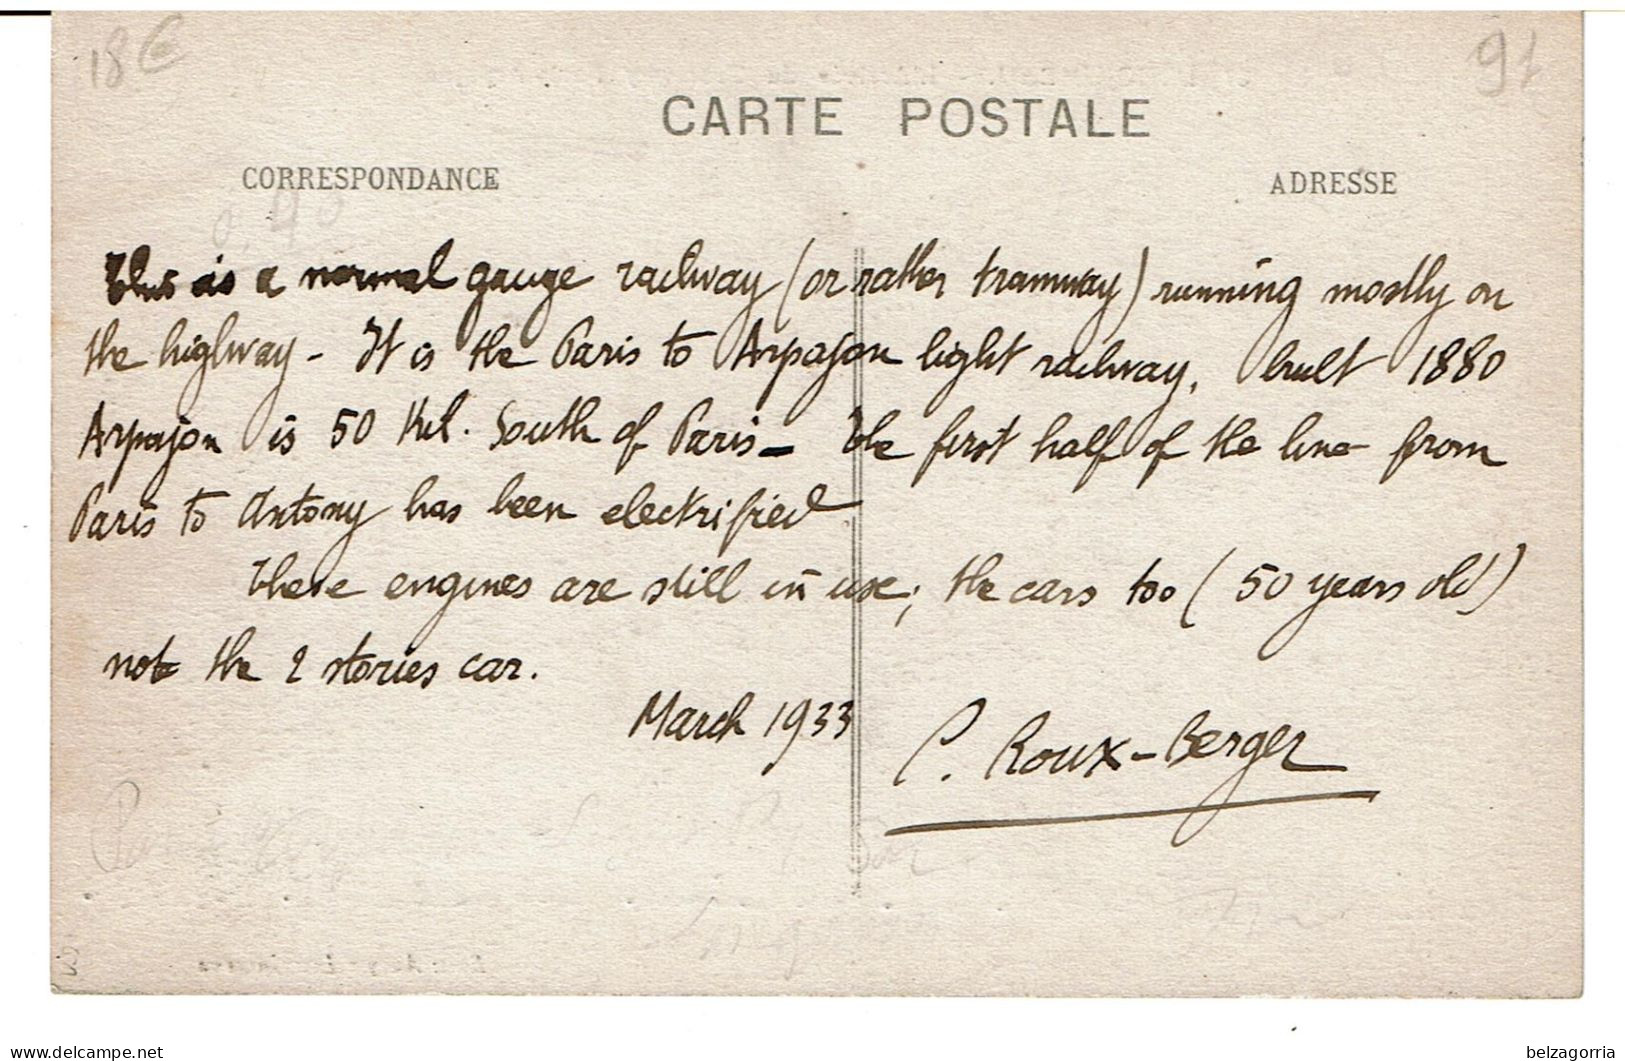 18€
91
CARTE POSTALE
CORRESPONDANCE
ADRESSE
0.40
This is a normal gauge railway (or rather tramway) running mostly on
the highway - It is the Paris to Arpajon light railway, built 1880
Arpajon is 50 Kil. South of Paris - The first half of the line from
Paris to Antony has been electrified
These engines are still in use; the cars too (50 years old)
not the 2 stories car.
March 1933
C. Roux-Berger
delcampe.net
belzagorria